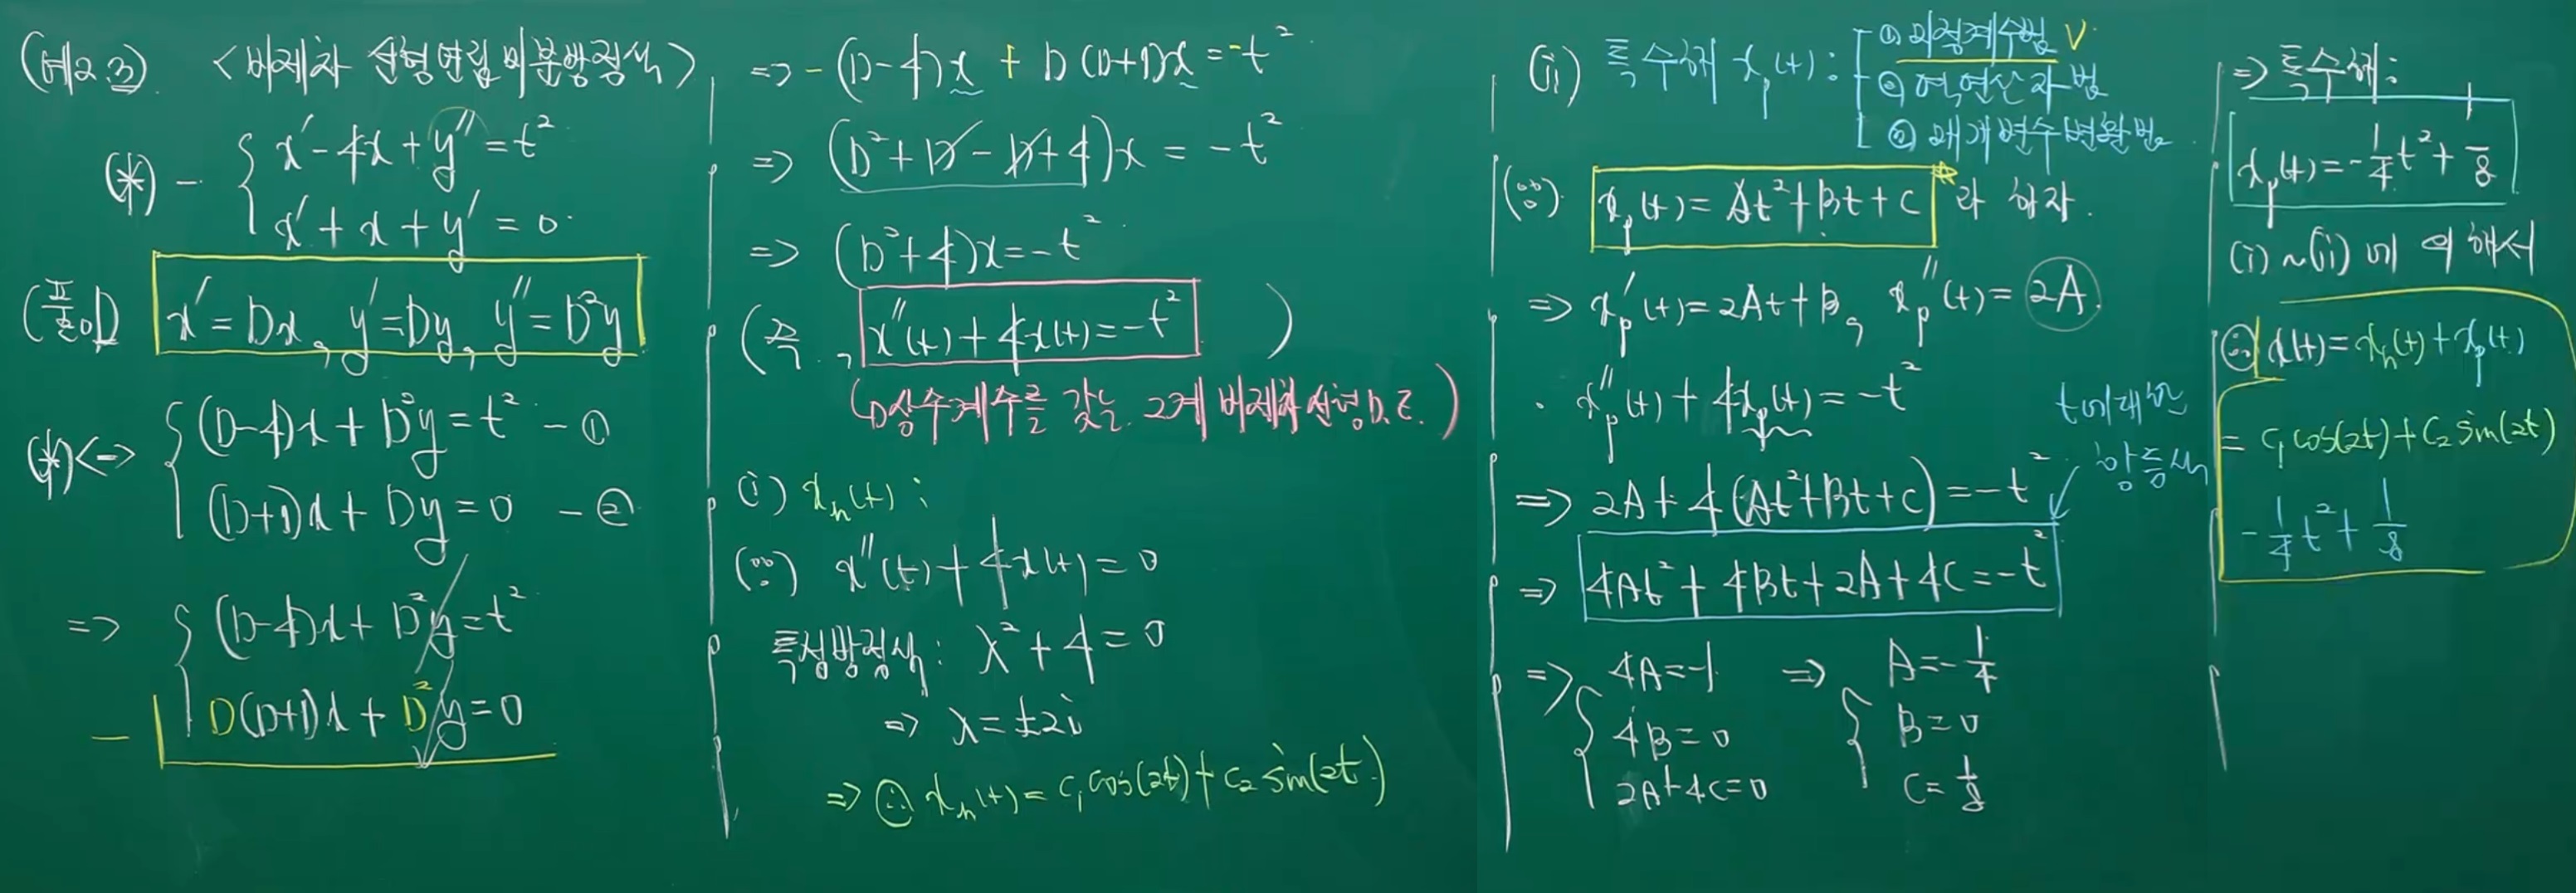 (예2.3) <비제차 선형연립미분방정식>
(*) - { x' - 4x + y'' = t²
x' + x + y' = 0.
(풀이) x' = Dx, y' = Dy, y'' = D²y
(*) <-> { (D-4)x + D²y = t² - ①
(D+1)x + Dy = 0 - ②
=> { (D-4)x + D²y = t²
- D(D+1)x + D²y = 0
=> -(D-4)x + D(D+1)x = -t²
=> (D² + D - D + 4)x = -t²
=> (D²+4)x = -t²
(즉, x''(t) + 4x(t) = -t² )
(D상수계수를 갖는 2계 비제차선형D.E.)
(i) xₕ(t) :
(∵) x''(t) + 4x(t) = 0
특성방정식: λ² + 4 = 0
=> λ = ±2i
=> ∴ xₕ(t) = c₁cos(2t) + c₂ sin(2t)
(ii) 특수해 xₚ(t) : [ ① 미정계수법 V
② 역연산자법
③ 매개변수변환법
(∵) xₚ(t) = At² + Bt + C * 라 하자.
=> xₚ'(t) = 2At + B, xₚ''(t) = 2A
· xₚ''(t) + 4xₚ(t) = -t²
t에대한
항등식
=> 2A + 4(At² + Bt + C) = -t²
=> 4At² + 4Bt + 2A + 4C = -t²
=> { 4A = -1 => { A = -1/4
4B = 0 B = 0
2A + 4C = 0 C = 1/8
=> 특수해:
xₚ(t) = -1/4 t² + 1/8
(i) ~ (ii) 에 의해서
∴ x(t) = xₕ(t) + xₚ(t)
= c₁cos(2t) + c₂ sin(2t)
- 1/4 t² + 1/8